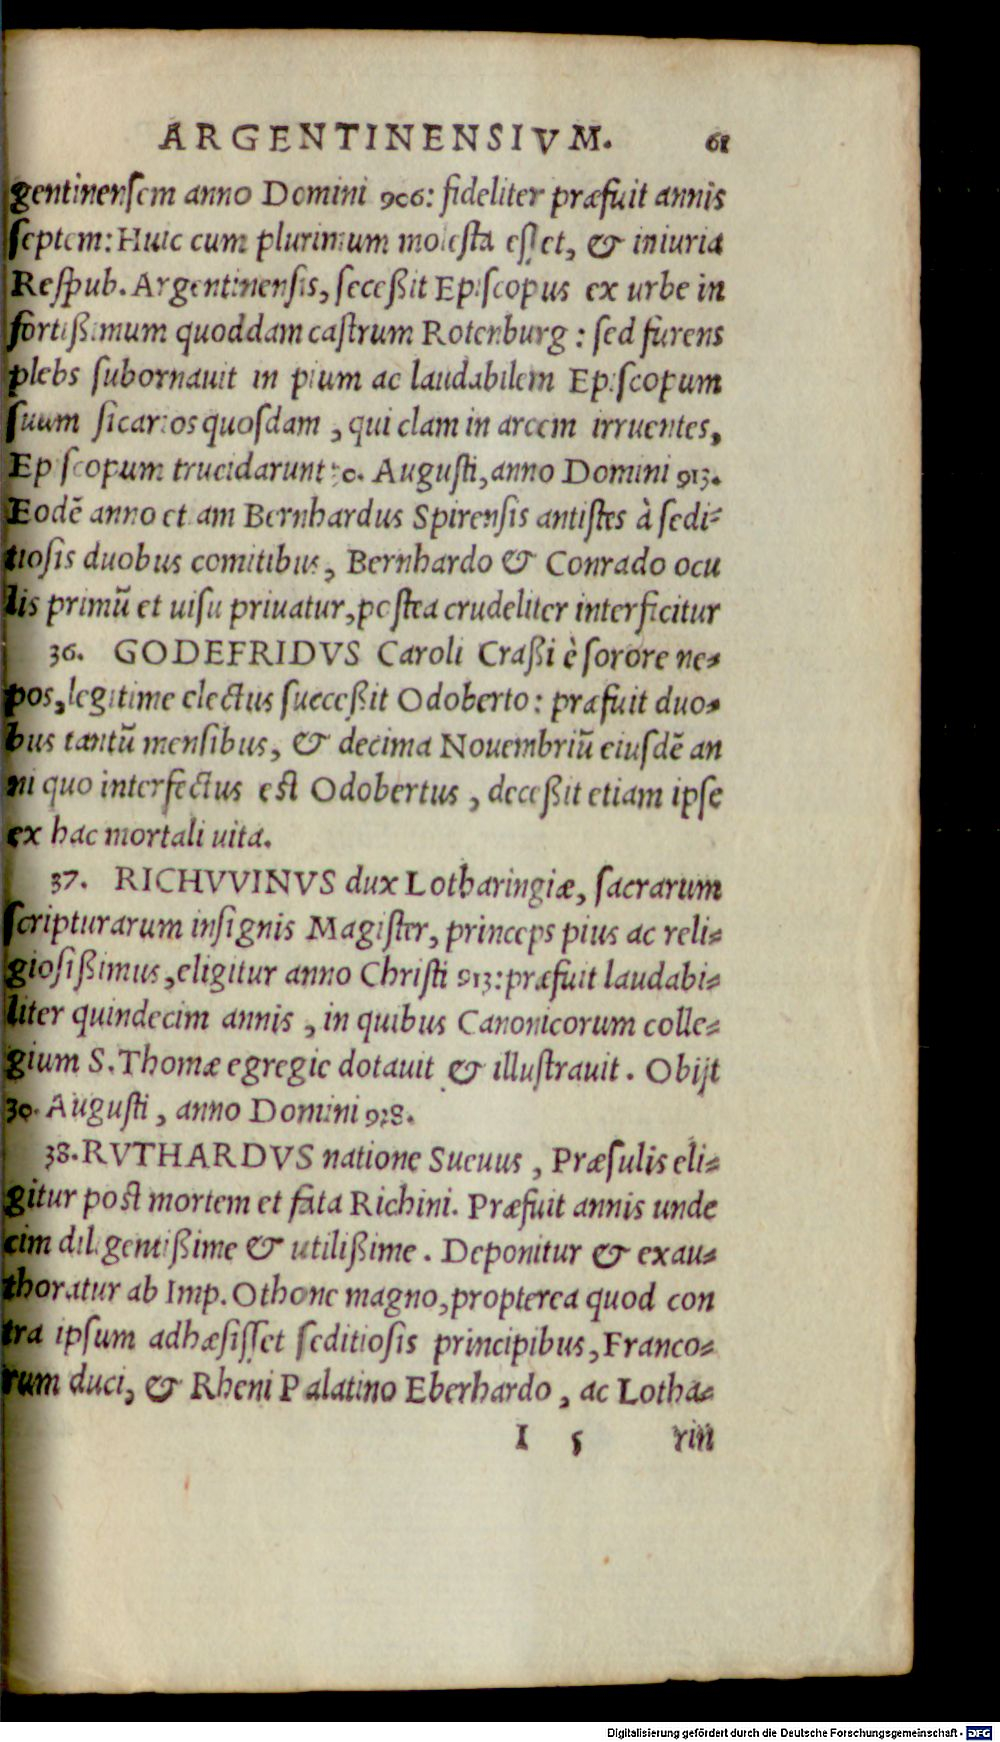 ARGENTINENSIVM. 61
gentinensem anno Domini 906: fideliter præfuit annis
septem: Huic cum plurimum molesta esset, & iniuria
Respub. Argentinensis, secessit Episcopus ex urbe in
fortissimum quoddam castrum Rotenburg: sed furens
plebs subornauit in pium ac laudabilem Episcopum
suum sicarios quosdam, qui clam in arcem irruentes,
Episcopum trucidarunt 30. Augusti, anno Domini 913.
Eodē anno etiam Bernhardus Spirensis antistes à sedi-
tiosis duobus comitibus, Bernhardo & Conrado ocu
lis primū et uisu priuatur, postea crudeliter interficitur
36. GODEFRIDVS Caroli Crassi è sorore ne-
pos, legitime electus successit Odoberto: præfuit duo-
bus tantū mensibus, & decima Nouembriū eiusdē an
ni quo interfectus est Odobertus, decessit etiam ipse
ex hac mortali uita.
37. RICHVVINVS dux Lotharingiæ, sacrarum
scripturarum insignis Magister, princeps pius ac reli-
giosissimus, eligitur anno Christi 913: præfuit laudabi-
liter quindecim annis, in quibus Canonicorum colle-
gium S. Thomæ egregie dotauit & illustrauit. Obijt
30. Augusti, anno Domini 928.
38. RVTHARDVS natione Sueuus, Præsulis eli-
gitur post mortem et fata Richini. Præfuit annis unde
cim diligentissime & utilissime. Deponitur & exau-
thoratur ab Imp. Othone magno, propterea quod con
tra ipsum adhæsisset seditiosis principibus, Franco-
rum duci, & Rheni Palatino Eberhardo, ac Lotha-
I 5 rin
Digitalisierung gefördert durch die Deutsche Forschungsgemeinschaft - DFG